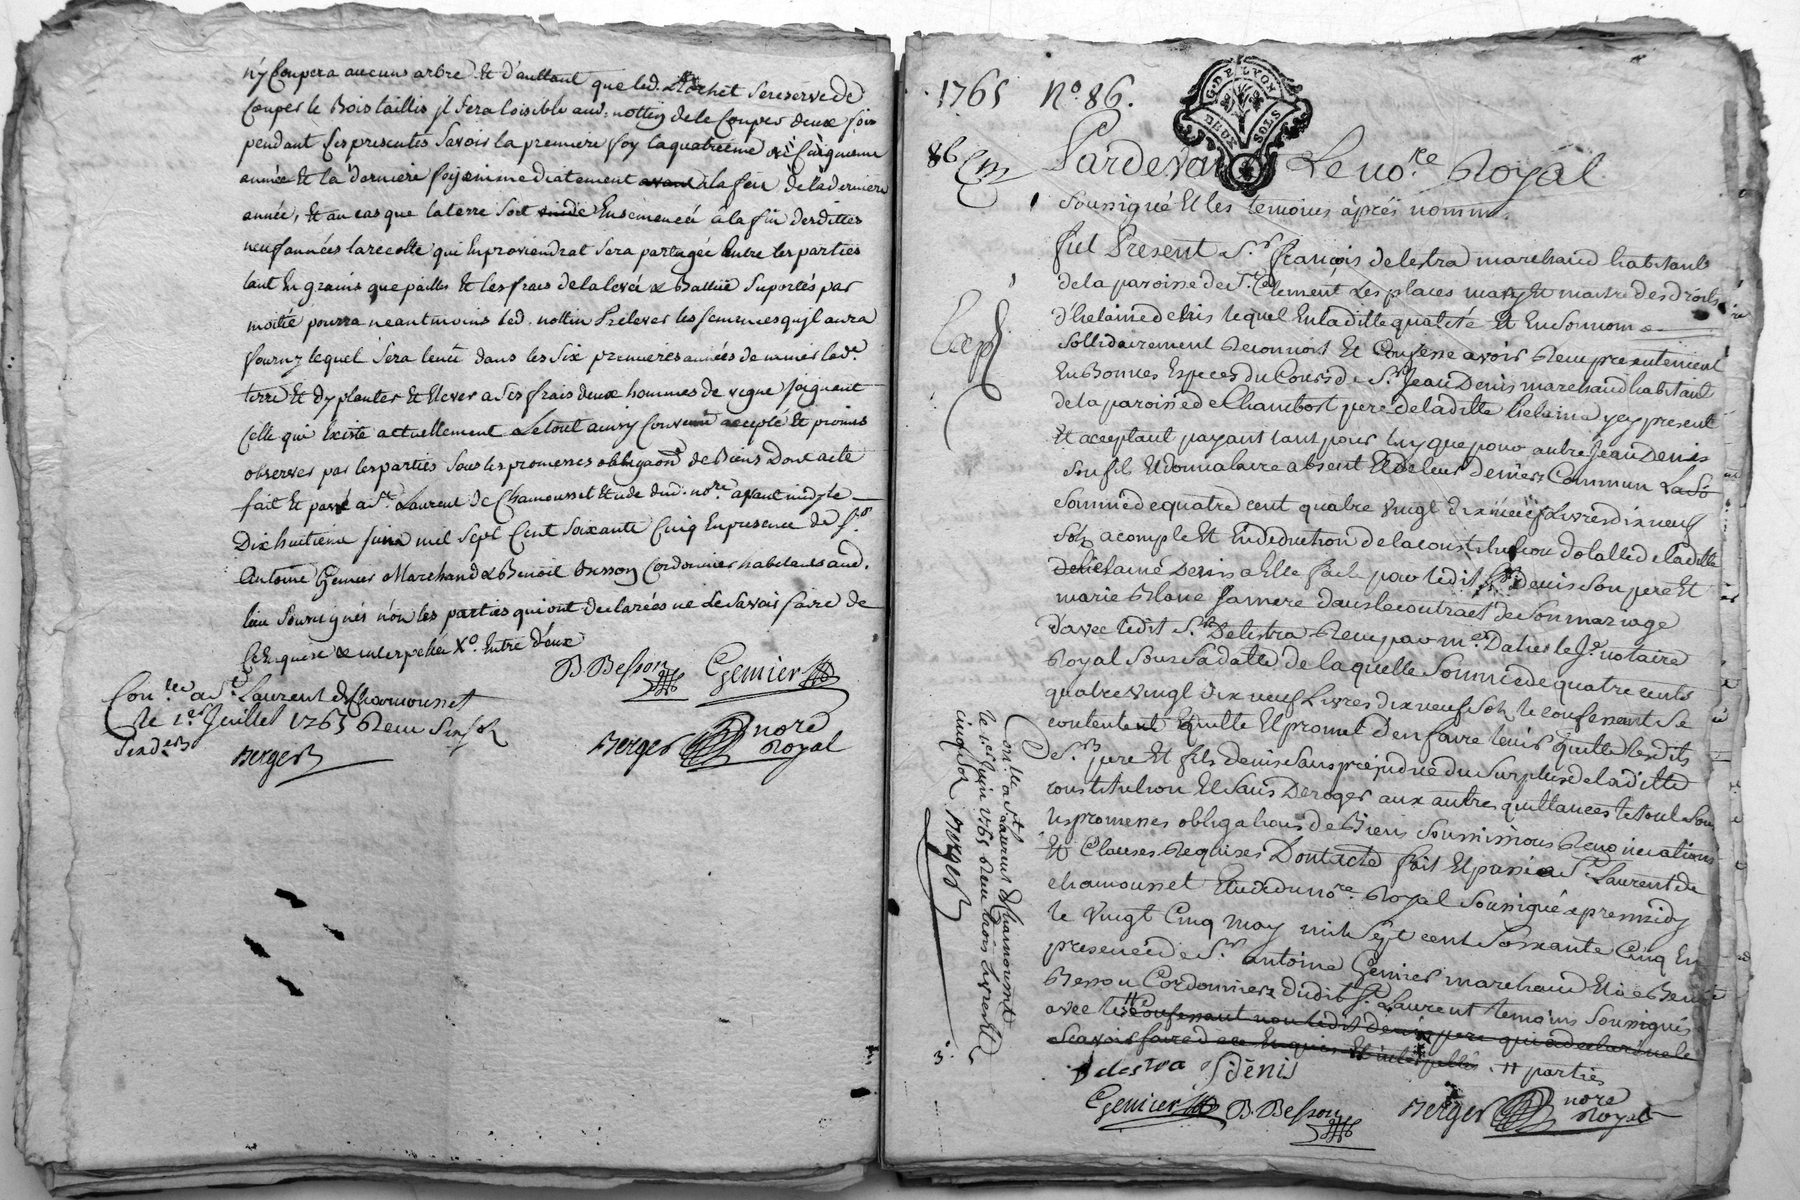 n'y Coupera aucuns arbre Et d'aultant que led. Se reserve de
Couper le Bois taillis jl Sera loisible aud. nottin de le Couper deux fois
pendant Ses presentes Savoir la premiere foy la quatrieme ou Cinquieme
année Et la derniere foy immediatement avant la fin de la derniere
année, Et au cas que la terre soit Ensemencée à la fin desdittes
neuf années la recolte qui En proviendrat Sera partagée Entre les parties
tant En grains que pailles Et les frais de la levée & Battüe Suportés par
moitié pourra neantmoins led. nottin Prelever les semences qu'jl aura
fourny lequel Sera tenu dans les Six premieres années de miner lad.e
terre Et d'y planter Et Elever a Ses frais deux hommes de vigne joignant
Celle qui Existe actuellement Le tout ainsy Convenu accepté Et promis
observer par les parties Sous les promesses obligaons de Biens Dont acte
fait Et passé a St. Laurent de Chamousset Etude dud. nore. avant midy le
Dix huitieme juin mil Sept Cent Soixante Cinq En presence de Sr.
Antoine Genier Marchand & Benoit Besson Cordonnier habitants aud.
lieu Soussignés non les parties qui ont declarées ne le Savoir faire de
Ce Enquise & interpellée Xo. Entre d'eux
B. Besson Genier
Con.llé a St. Laurent de Chamousset
le 1er. Juillet 1765 Receu Six sols
Six den
Berger
Berger nore
Royal
1765 No. 86.
G. DE LYON
DEUX SOLS
86
Pardevant Le no.re Royal
Soussigné Et les temoins après nommés
fut Present Sr. François delestra marchand habitant
de la paroisse de St. Clement Les places mary Et maitre des droits
d'helaine denis lequel En laditte qualité Et En Son nom
Sollidairement Reconnoit Et Confesse avoir Receu presentement
En Bonnes Especes du Cours de Sr. Jean Denis marchand habitant
de la paroisse de Chambost pere de laditte helaine ycy present
Et acceptant payant tant pour luy que pour autre Jean Denis
Son fils Et donnataire absent Et de leur deniers Commun La So
Somme de quatre cent quatre vingt dix neuf Livres dix neuf
Sols a compte Et En deduction de la constitution dotalle de laditte
helaine Denis a Elle faite par ledit Sr. denis Son pere Et
marie Blanc Sa mere dans le contract de Son mariage
d'avec ledit Sr. Delestra Receu par me. Dalier le Je. notaire
Royal Sous Sa datte de laquelle Somme de quatre cents
quatre vingt dix neuf Livres dix neuf Sols le confessant Se
contentent Equitte Et promet d'en faire tenir quitte lesdits
Srs. pere Et fils denis Sans prejudice du Surplus de laditte
constitution Et Sans Deroger aux autres quittances le tout Sous
les promesses obligations de Biens Soumissions Renonciations
Et Clauses Requises Dont acte fait Et passé a St. Laurent de
chamousset Etude du no.re Royal Soussigné apres midy
le vingt Cinq may mil Sept cent Soixante Cinq En
presence de Sr. antoine Genier marchand Et de Benoit
Besson Cordonnier dudit St. Laurent temoins Soussignés
avec les confessant non ledit denis pere qui a declaré ne le
Scavoir faire de ce Enquis Et interpellé. # parties
delestra J denis
Genier B. Besson Berger nore
Royal
Con.llé a St. Laurent de Chamousset
le 1er. Juin 1765 Receu trois Livres Et
cinq Sols Berger
3